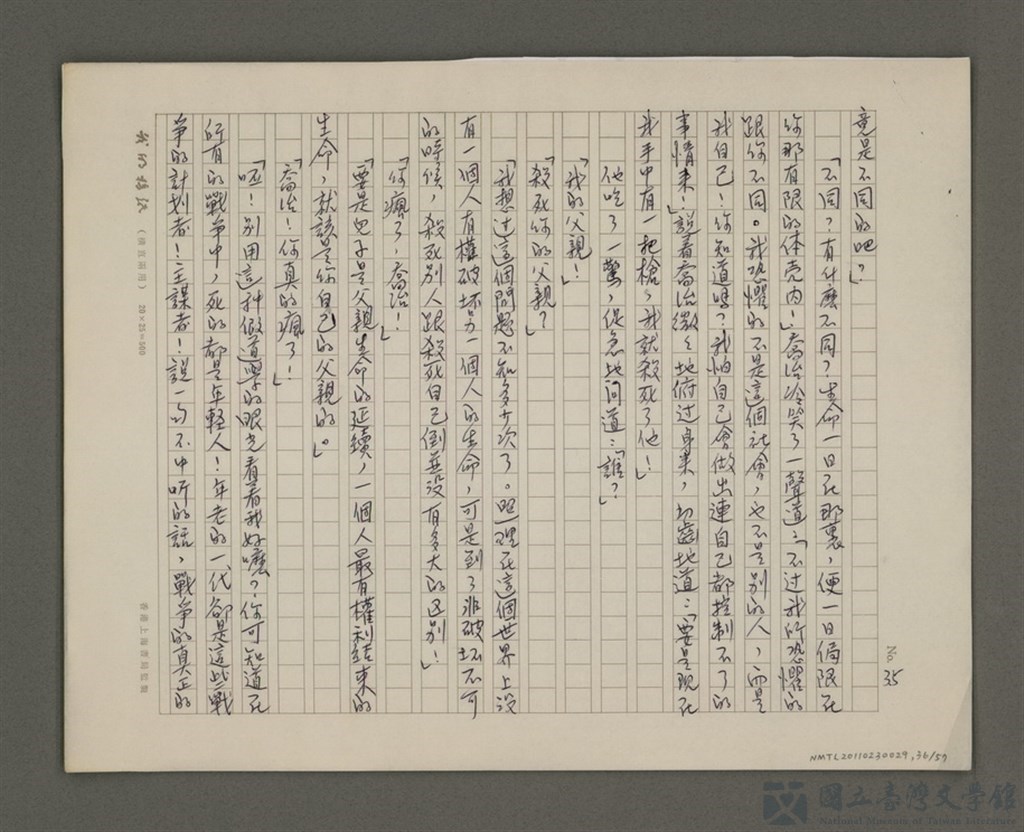 No. 35
竟是不同的吧？」
「不同？有什麼不同？生命一日在那裏，便一日侷限在
你那有限的体壳內！」喬治冷笑了一聲道：「不过我所恐懼的
跟你不同。我恐懼的不是這個社會，也不是別的人，而是
我自己！你知道嗎？我怕自己會做出連自己都控制不了的
事情來！」說着喬治微微地俯过身來，切近地道：「要是現在
我手中有一把槍，我就殺死了他！」
他吃了一驚，促急地问道：「誰？」
「我的父親！」
「殺死你的父親？」
「我想过這個問題不知多少次了。照理在這個世界上沒
有一個人有權破坏另一個人的生命，可是到了非破坏不可
的時候，殺死別人跟殺死自己倒並沒有多大的区別！」
「你瘋了，喬治！」
「要是兒子是父親生命的延續，一個人最有權利結束的
生命，就該是你自己的父親的。」
「喬治！你真的瘋了！」
「呸！別用這种假道學的眼光看着我好嚒？你可知道在
所有的戰爭中，死的都是年輕人！年老的一代卻是這些戰
爭的計划者！主謀者！說一句不中听的話，戰爭的真正的
我的稿紙 （橫直兩用） 20×25=500
香港上海書局監製
NMTL20110230029,36/57
國立臺灣文學館
National Museum of Taiwan Literature